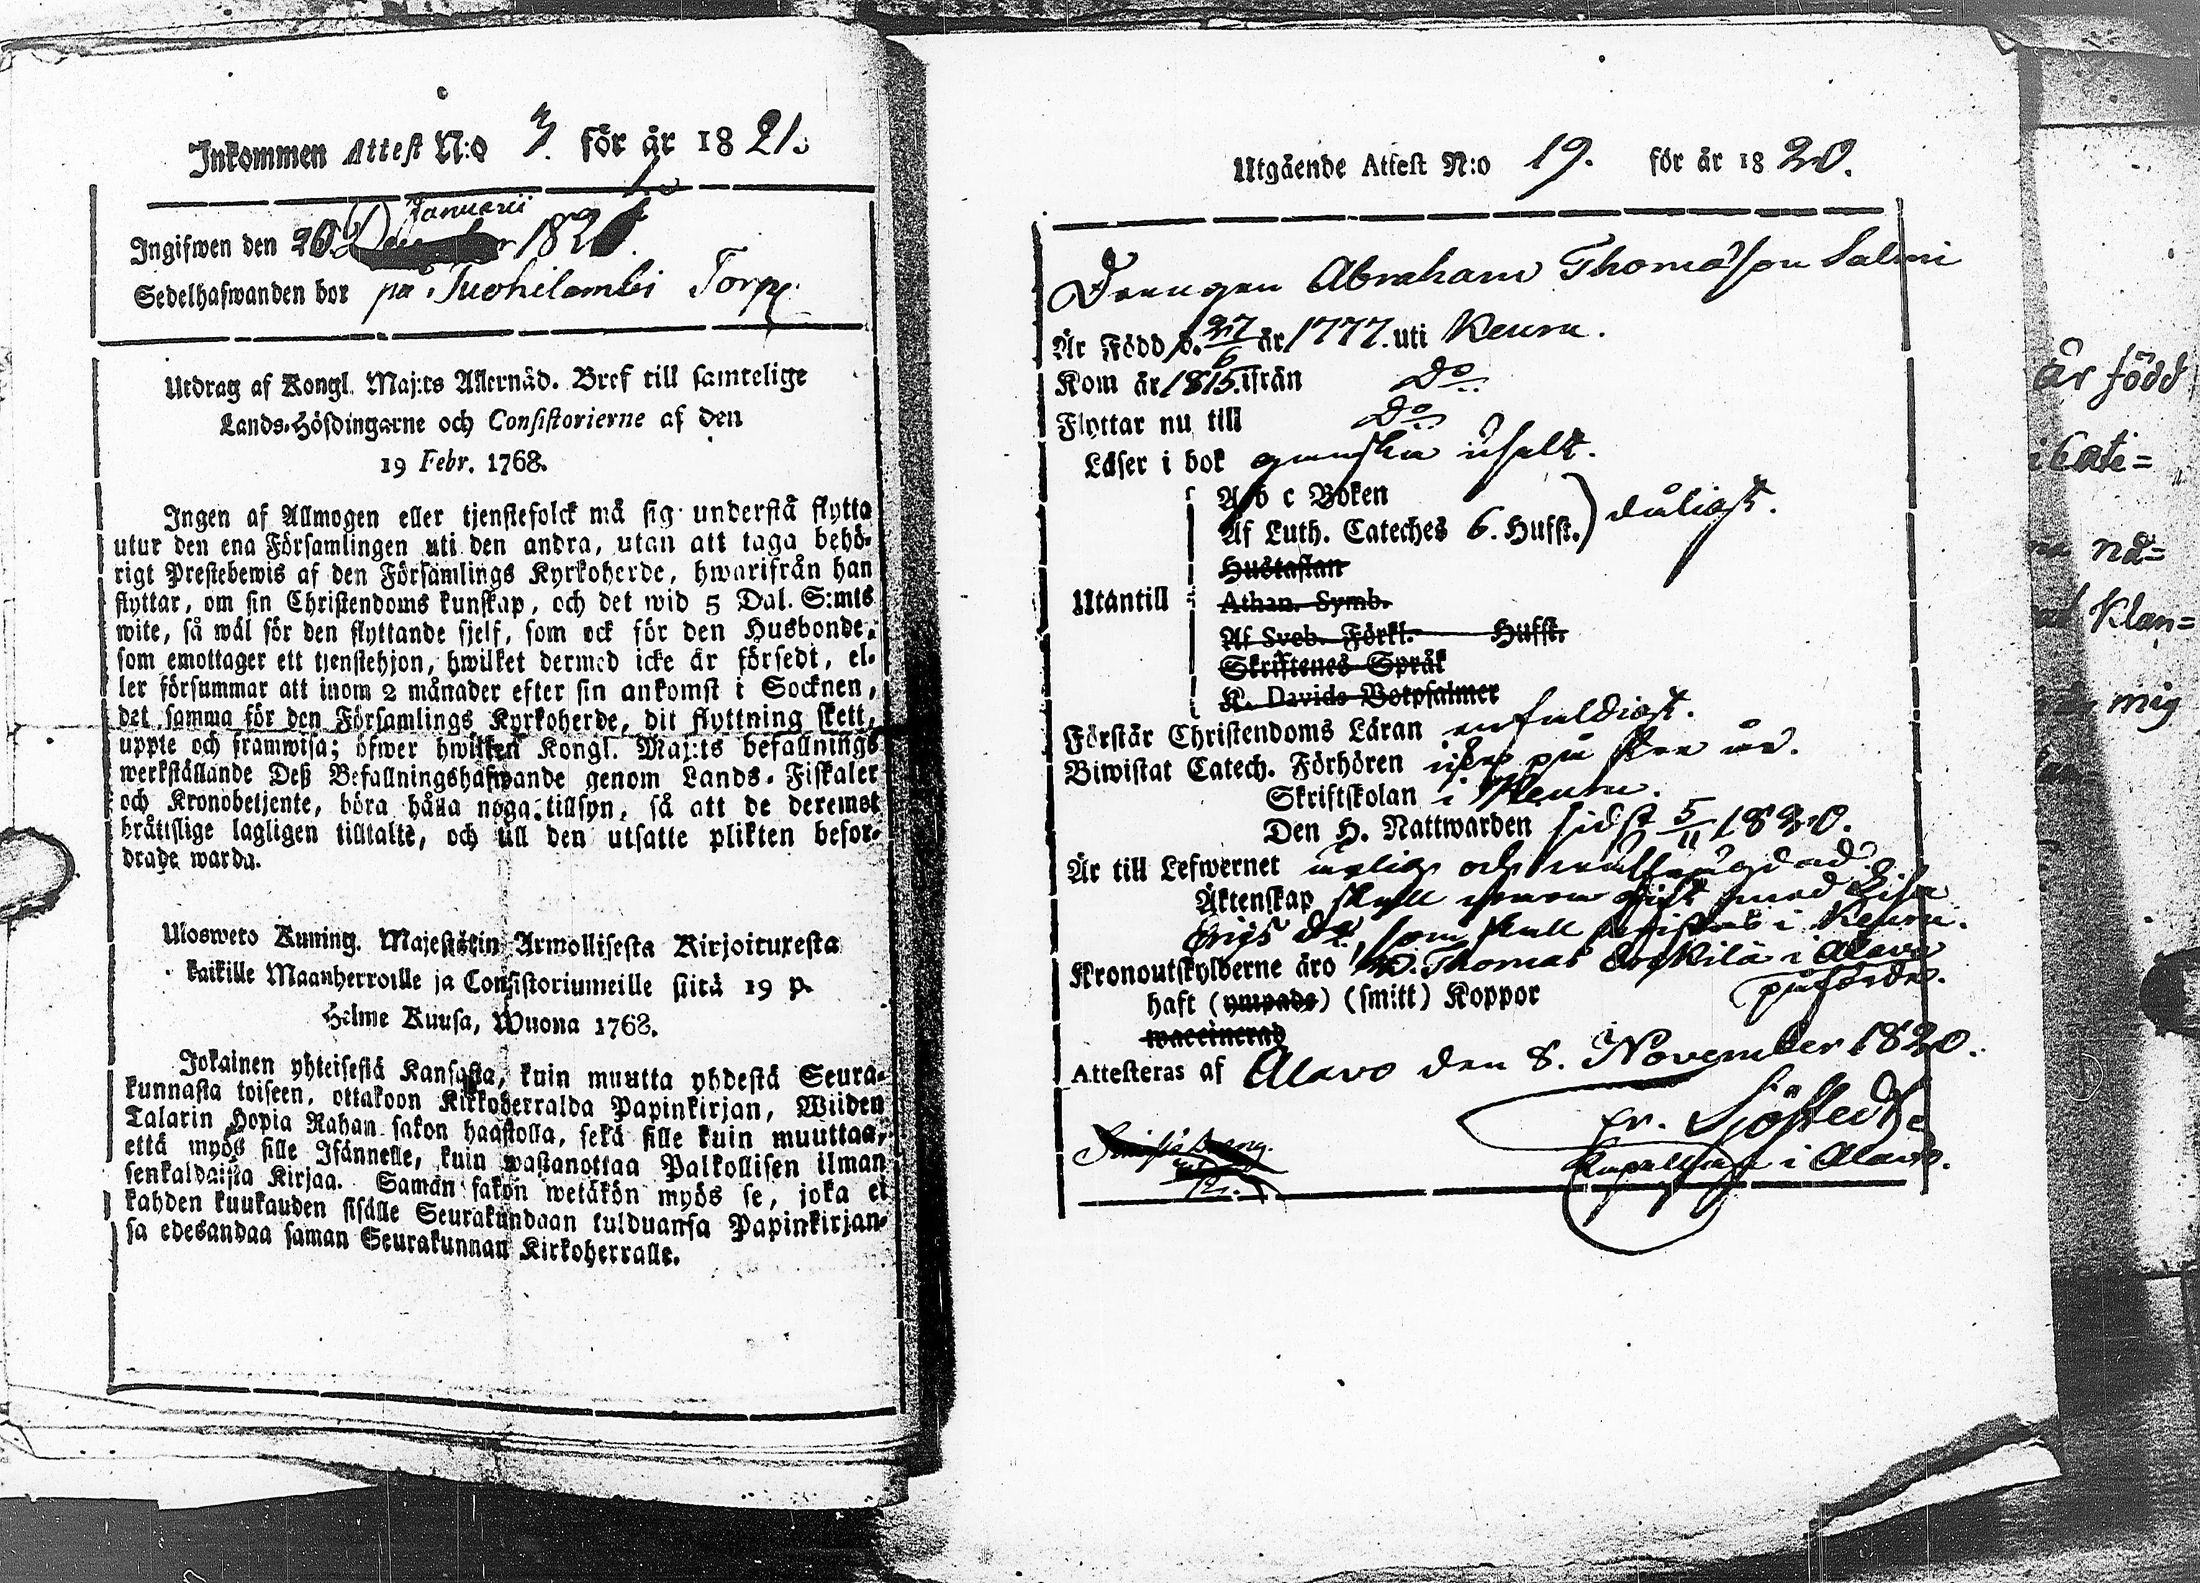 Inkommen Attest N:o 3. för år 1821.
Ingifwen den 20. Januarii 1821.
Sedelhafwanden bor på Suohilambi Torp.
Utdrag af Kongl. Maj:ts Allernåd. Bref till samtelige
Lands-Höfdingarne och Consistorierne af den
19 Febr. 1768.
Ingen af Allmogen eller tjenstefolck må sig understå flytta
utur den ena Församlingen uti den andra, utan att taga behö-
rigt Prestebewis af den Församlings Kyrkoherde, hwarifrån han
flyttar, om sin Christendoms kunskap, och det wid 5 Dal. S:mts
wite, så wäl för den flyttande sjelf, som ock för den Husbonde,
som emottager ett tjenstehjon, hwilket dermed icke är försedt, el-
ler försummar att inom 2 månader efter sin ankomst i Socknen,
det samma för den Församlings Kyrkoherde, dit flyttning skett,
uppte och framwisa; öfwer hwilken Kongl. Maj:ts befallnings
werkställande Deß Befallningshafwande genom Lands-Fiskaler
och Kronobetjente, böra hålla noga tillsyn, så att de deremot
bråttslige lagligen tilltalte, och till den utsatte plikten befor-
drade warda.
Ulosweto Kuning. Majestätin Armollisesta Kirjoituxesta
kaikille Maanherroille ja Consistoriumeille siitä 19 p.
Helme Kuusa, Wuona 1768.
Jokainen yhteisestä Kansasta, kuin muutta yhdestä Seura-
kunnasta toiseen, ottakoon Kirkoherralda Papinkirjan, Wiiden
Talarin Hopia Rahan sakon haastolla, sekä sille kuin muuttaa,
että myös sille Isännelle, kuin wastanottaa Palkollisen ilman
senkaldaista Kirjaa. Saman sakon wetäkön myös se, joka ei
kahden kuukauden sisälle Seurakundaan tulduansa Papinkirjan-
sa edesandaa saman Seurakunnan Kirkoherralle.
Utgående Attest N:o 19. för år 1820.
Drengen Abraham Thomasson Salmi
Är Född d. 27/6 år 1777. uti Keuru.
Kom år 1815. ifrån Do
Flyttar nu till Do
Läser i bok ganska uselt.
A b c Boken
Af Luth. Cateches 6. Hufst. dåligt.
Hustaflan
Utantill Athan. Symb.
Af Sveb. Förkl. Hufst.
Skriftenes Språk
K. Davids Botpsalmer
Förstår Christendoms Läran enfaldigt.
Biwistat Catech. Förhören icke på flere år.
Skriftskolan i Keuru.
Den H. Nattwarden sidst 5/11 1820.
Är till Lefwernet och
Äktenskap skall wara gift med Lisa
Erics dr, som skall wistas i Keuru.
Kronoutskylderne äro Thomas i Alavo
påförde.
haft (ympade) (smitt) Koppor
waccinerad
Attesteras af Alavo den 8. November 1820.
Er. Sjöstedt.
Kapellan i Alavo.
är född
i Cate=
nä=
Klan=
mig